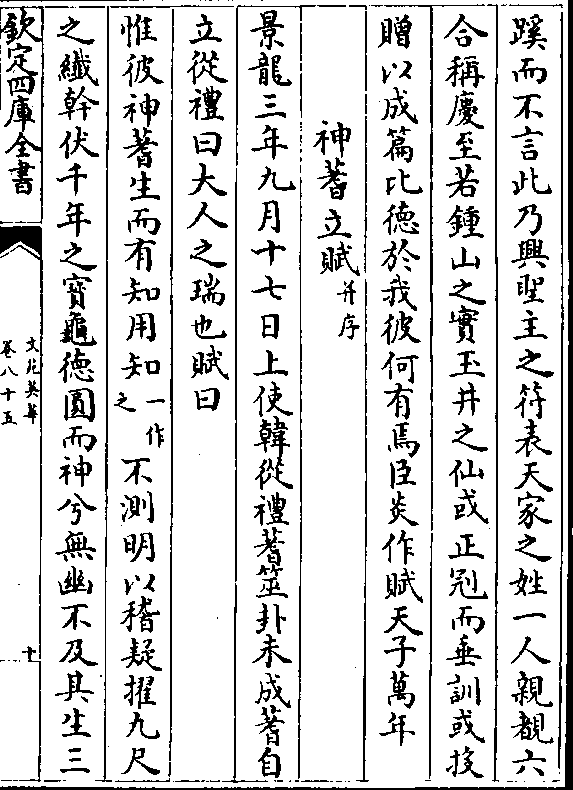 蹊而不言此乃興聖主之符表天家之姓一人親覩六
合稱慶至若鍾山之實玉井之仙或正冠而垂訓或投
贈以成篇比德於我彼何有焉臣炎作賦天子萬年
神蓍立賦并序
景龍三年九月十七日上使韓從禮蓍筮卦未成蓍自
立從禮曰大人之瑞也賦曰
惟彼神蓍生而有知用知一作之不測明以稽疑擢九尺
之纖幹伏千年之寶龜德圓而神兮無幽不及具生三
欽定四庫全書
文苑英華
卷八十五
十